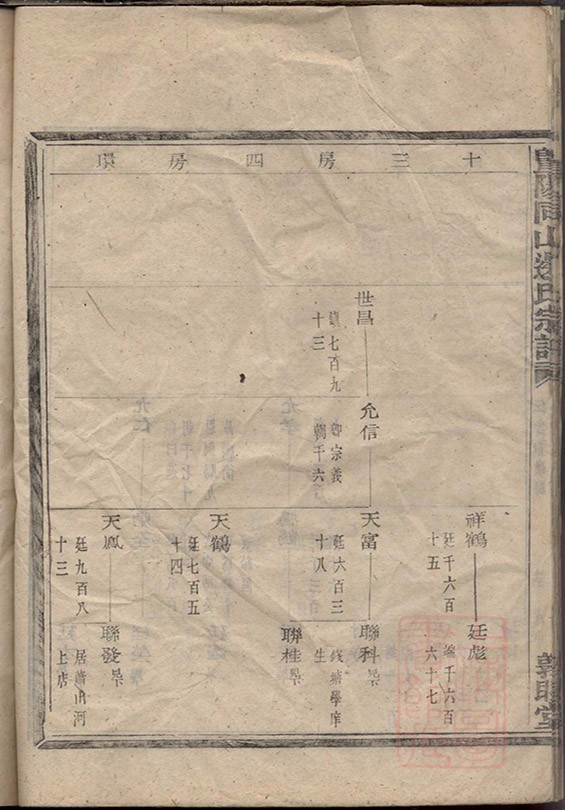 暨陽同山邊氏宗譜
敦睦堂
十三房四房環
世昌
七百九
十三
允信
即宗義
朝千六
祥鶴
廷千六百
十五
廷彪
千六百
六十七
天富
廷六百三
十八
聯科
錢塘學庠
生
聯桂
天鶴
廷七百五
十四
天鳳
廷九百八
十三
聯發
居蕭山河
上店